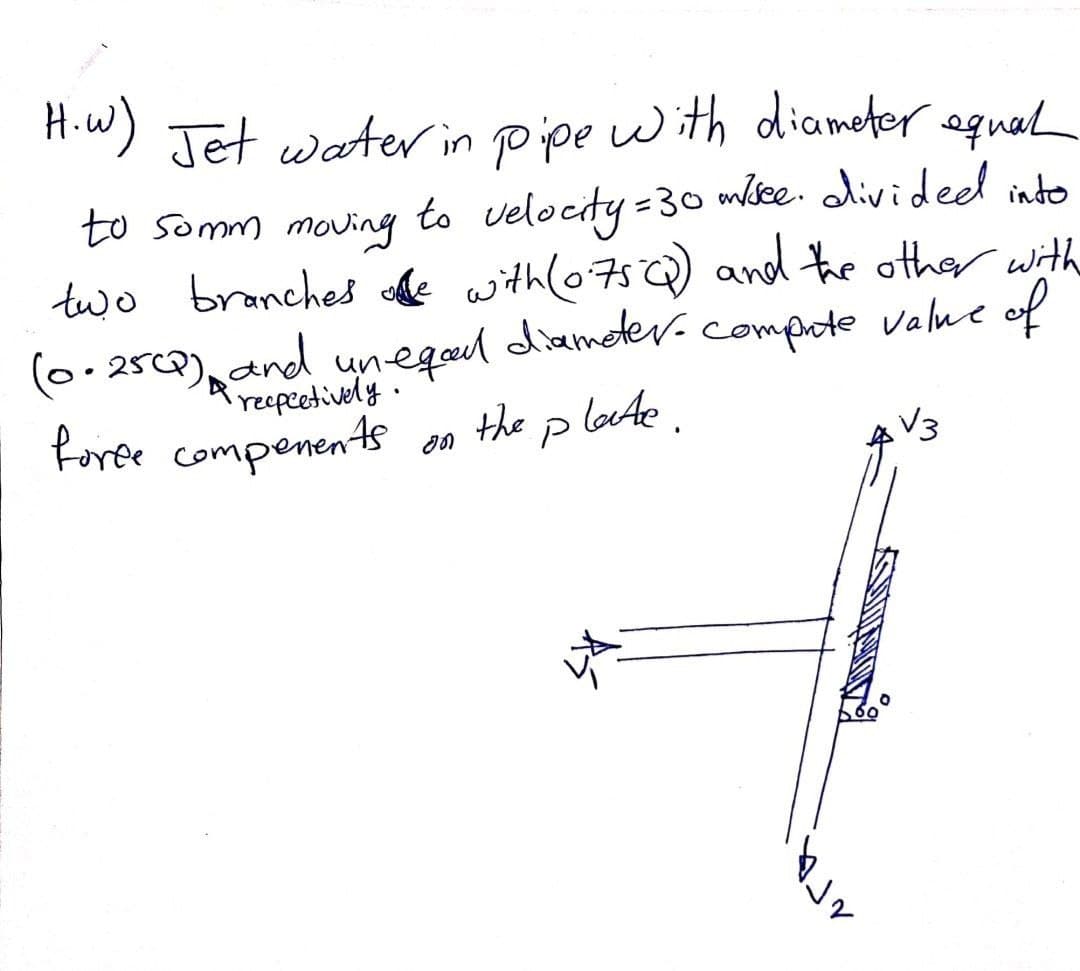 H.w) Jet water in pipe with diameter equal
to 50mm moving to velocity = 30 m/sec. divided into
two branches with (0.75Q) and the other with
(0.25Q), and un-equal diameter. compute value of
recpectively.
force compenents on the plate.
V3
V1
60°
V2